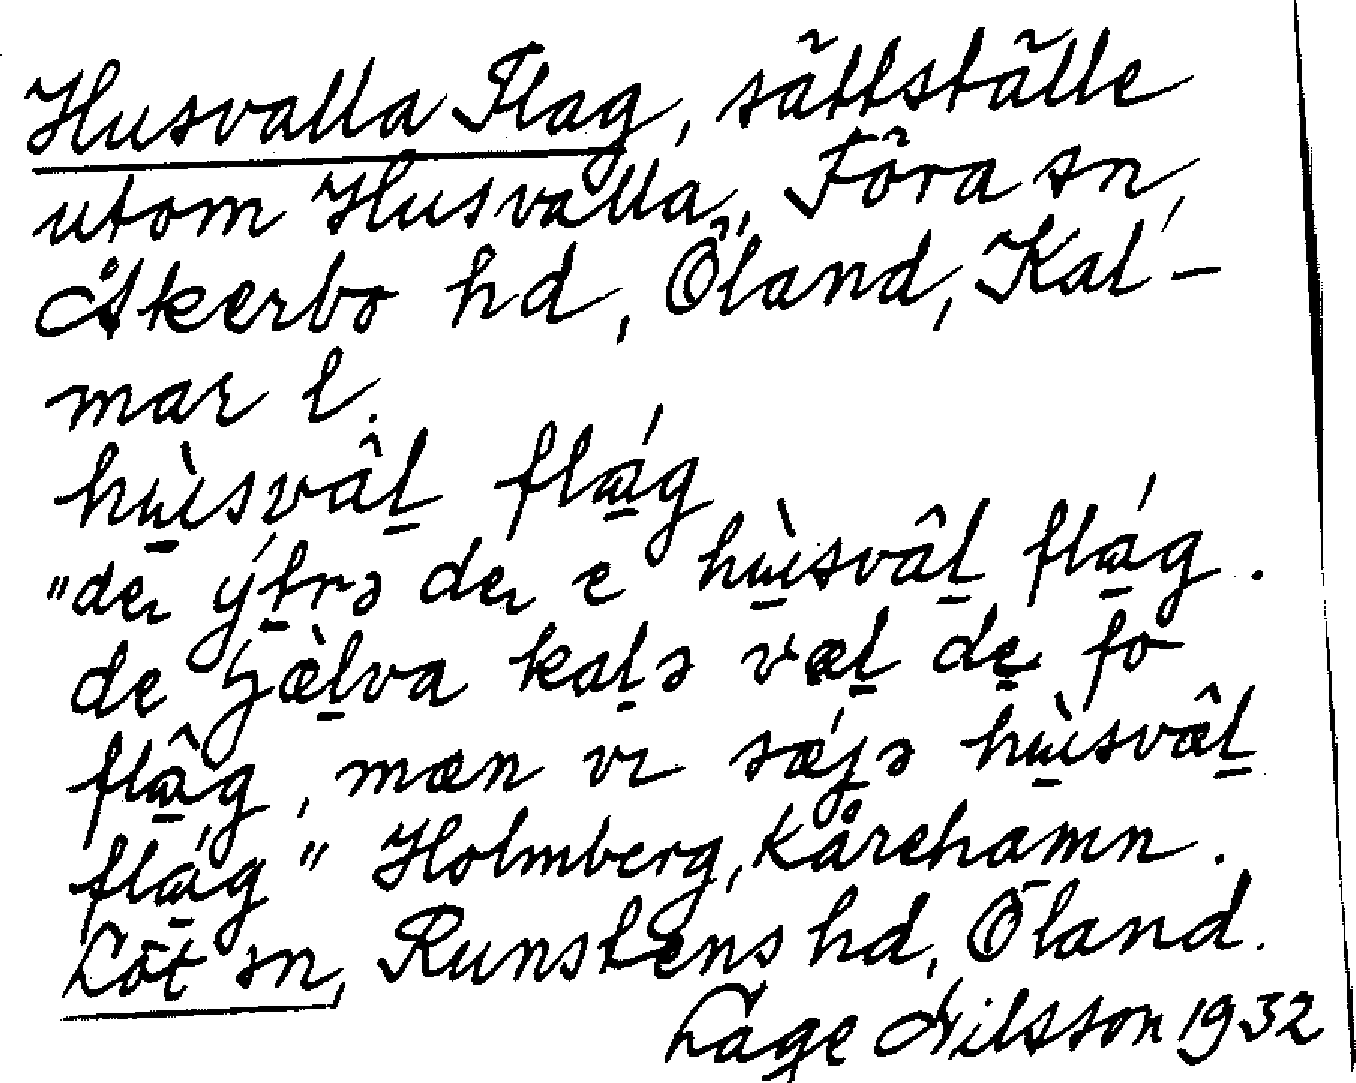 Husvalla Flag, sättställe
utom Husvalla, Föra sn,
Åkerbo hd, Öland, Kal-
mar l.
hùsvâl flág
"de ýtrə de e hùsvâl flág.
de hjæ̀lva kalə væl de fo
flâg, mæn vi sǽjə hùsvâl
flág" Holmberg, Kårehamn.
Löt sn, Runstens hd, Öland.
Lage Nilsson 1932